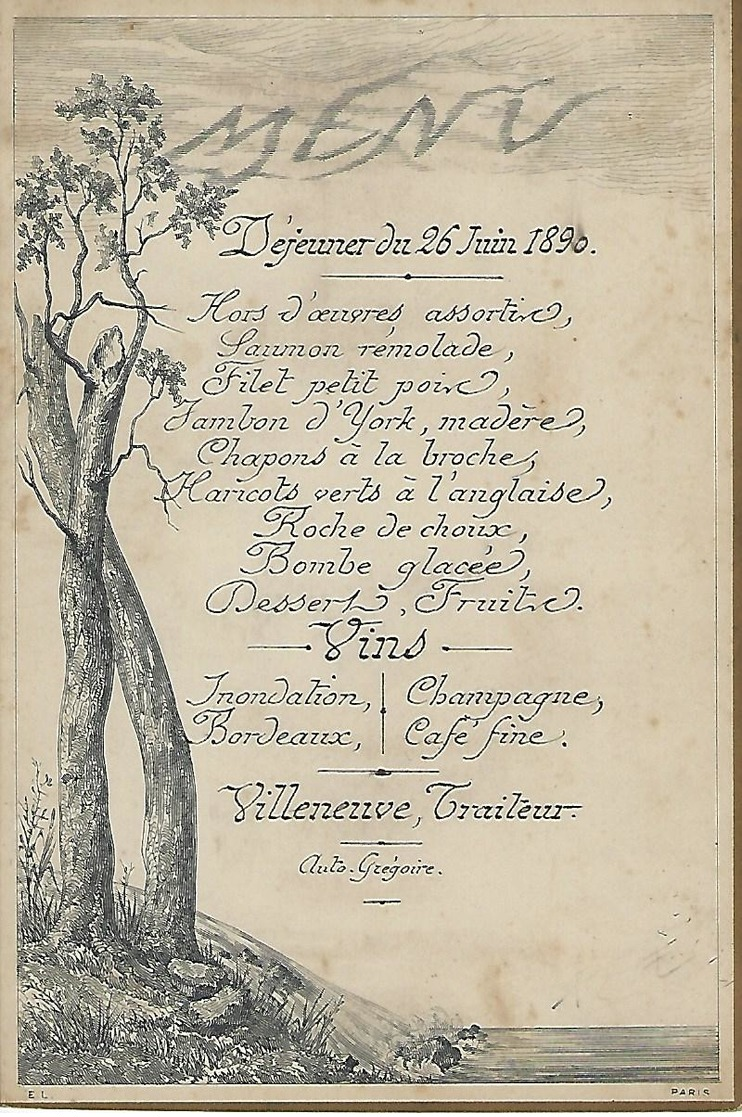 MENU
Déjeuner du 26 Juin 1890.
Hors d'œuvres assortis,
Saumon rémolade,
Filet petit pois,
Jambon d'York, madère,
Chapons à la broche,
Haricots verts à l'anglaise,
Roche de choux,
Bombe glacée,
Dessert, Fruits.
Vins
Inondation, Champagne,
Bordeaux, Café fine.
Villeneuve, Traiteur.
Auto. Grégoire.
E L PARIS